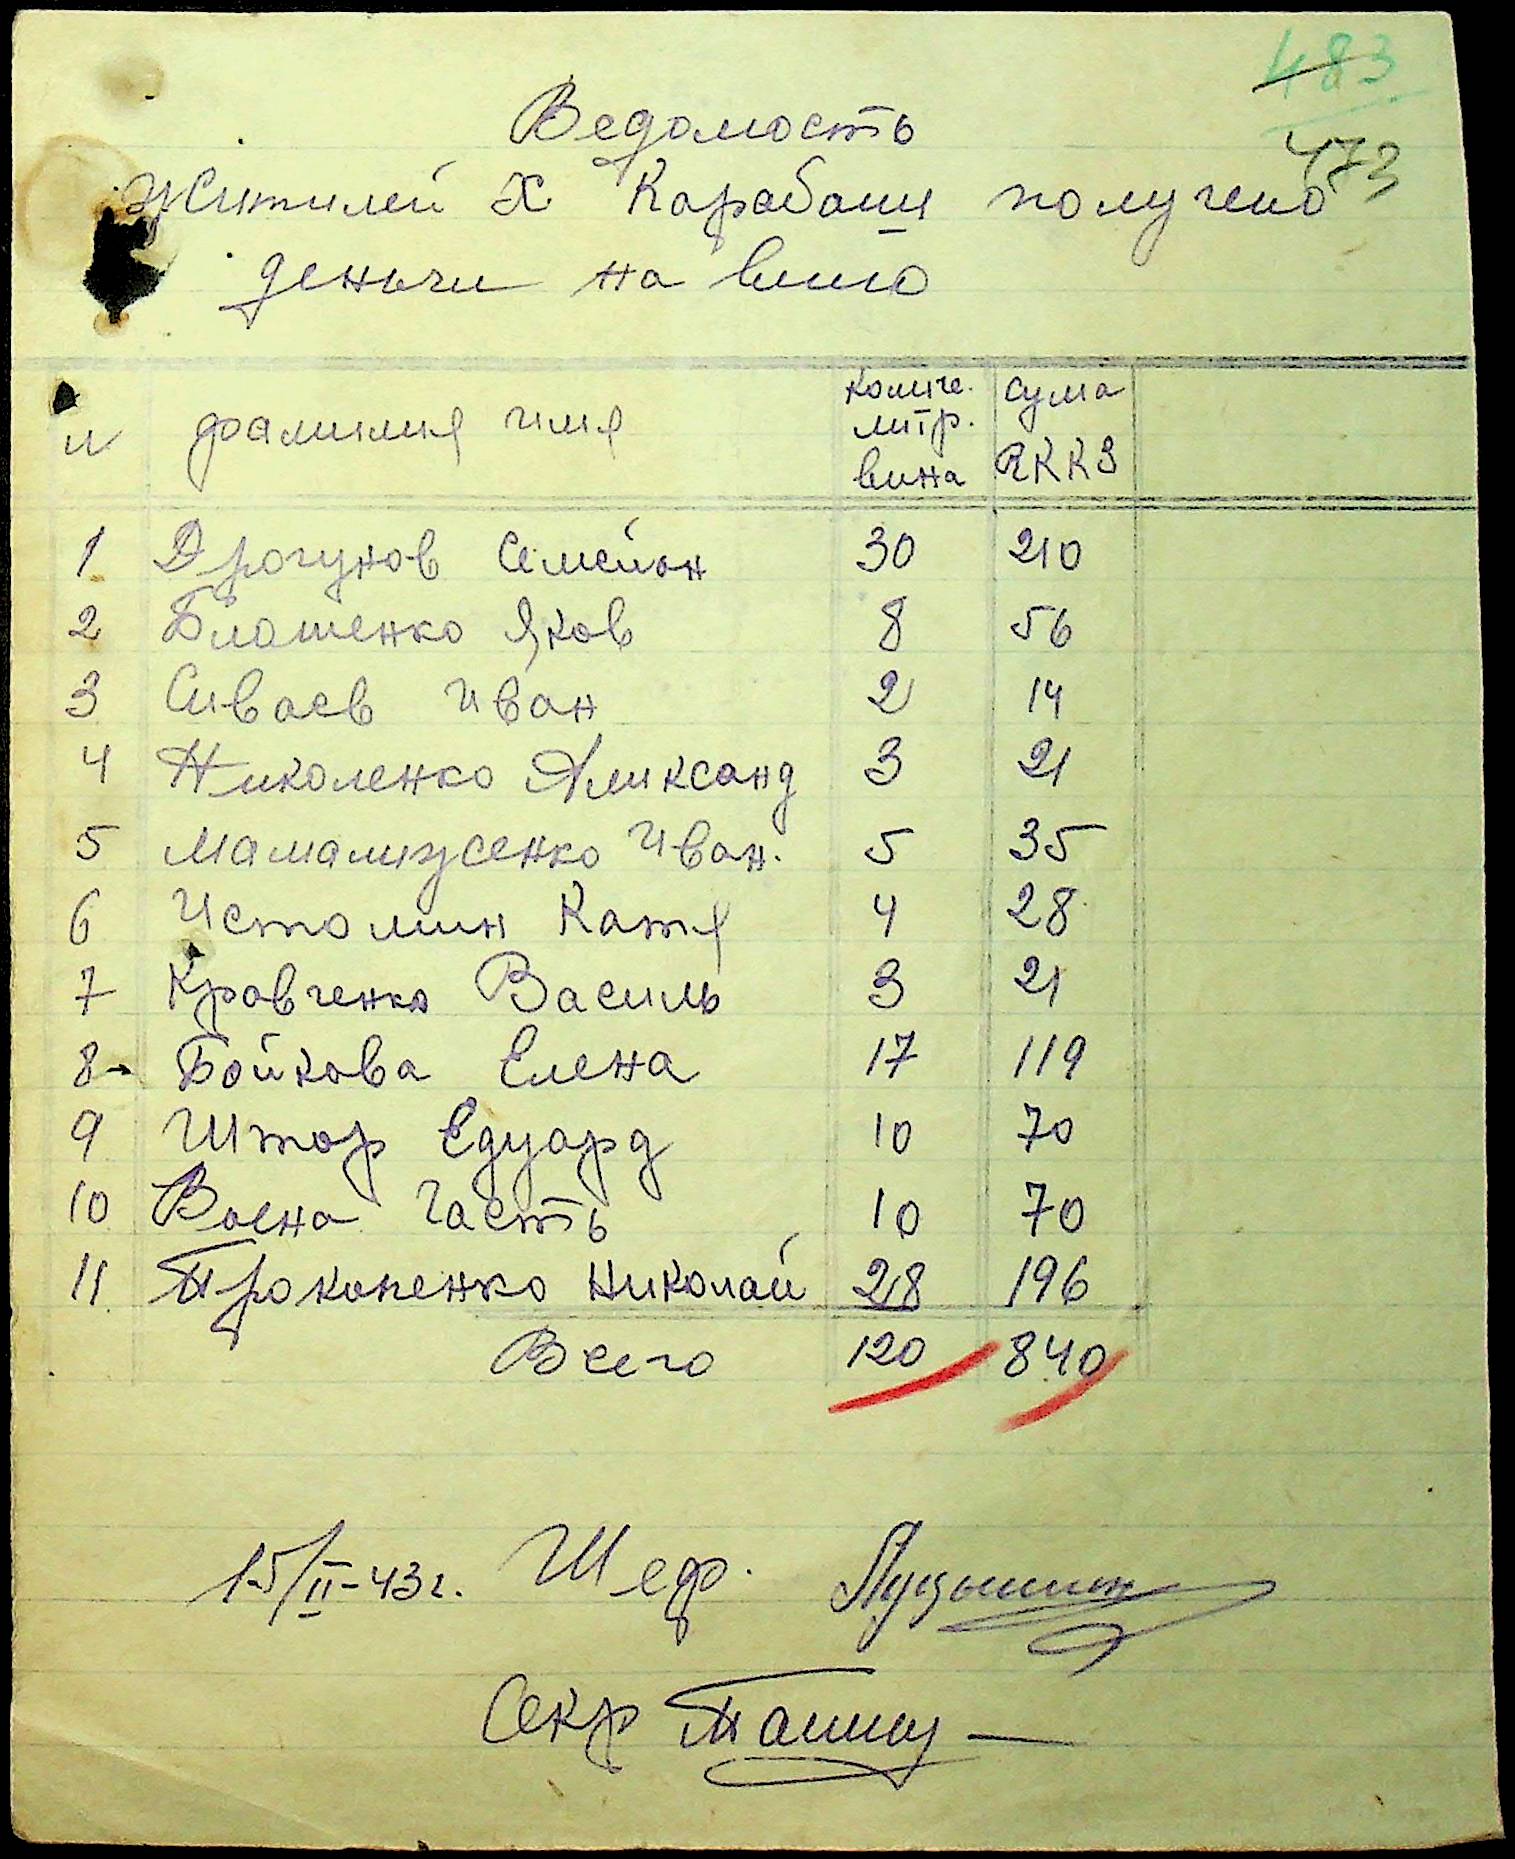 483
473
Ведомость
Жителей Х Карабаш получено
деньги на вино
N фамилия имя количе. литр. вина сума RKKS
1 Дрогунов Семейон 30 210
2 Блашенко Яков 8 56
3 Сиваев Иван 2 14
4 Николенко Аликсанд 3 21
5 Мамалиусенко Иван. 5 35
6 Истомин Катя 4 28
7 Кровченко Василь 3 21
8 Бойкова Елена 17 119
9 Штор Едуард 10 70
10 Воена Часть 10 70
11 Прокопенко Николай 28 196
Всего 120 840
15/II-43г. Шеф.
Секр